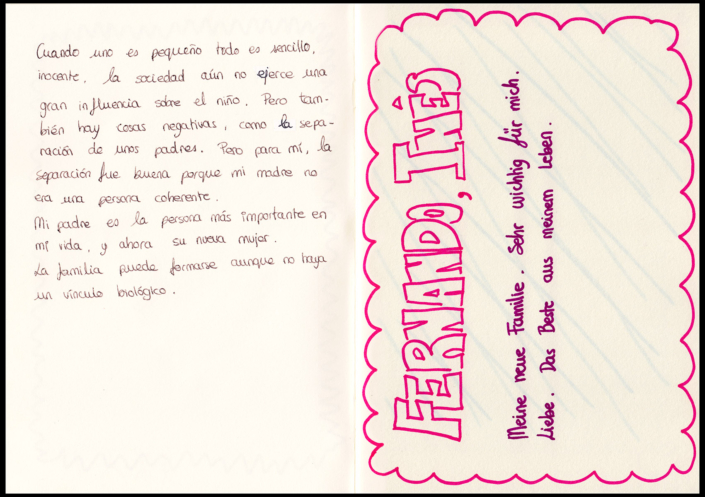 Cuando uno es pequeño todo es sencillo,
inocente. La sociedad aún no ejerce una
gran influencia sobre el niño. Pero tam-
bién hay cosas negativas, como la sepa-
ración de unos padres. Pero para mí, la
separación fue buena porque mi madre no
era una persona coherente.
Mi padre es la persona más importante en
mi vida, y ahora su nueva mujer.
La familia puede formarse aunque no haya
un vínculo biológico.
FERNANDO, INÊS
Meine neue Familie. Sehr wichtig für mich.
Liebe. Das Beste aus meinem Leben.